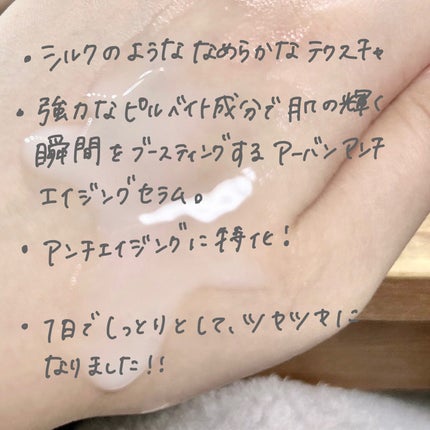 ・シルクのような なめらかな テクスチャ
・強力なピルベイト成分で 肌の輝く
瞬間をブースティングする アーバンアンチ
エイジングセラム。
・アンチエイジングに特化！
・7日でしっとりとして、ツヤツヤに
なりました!!